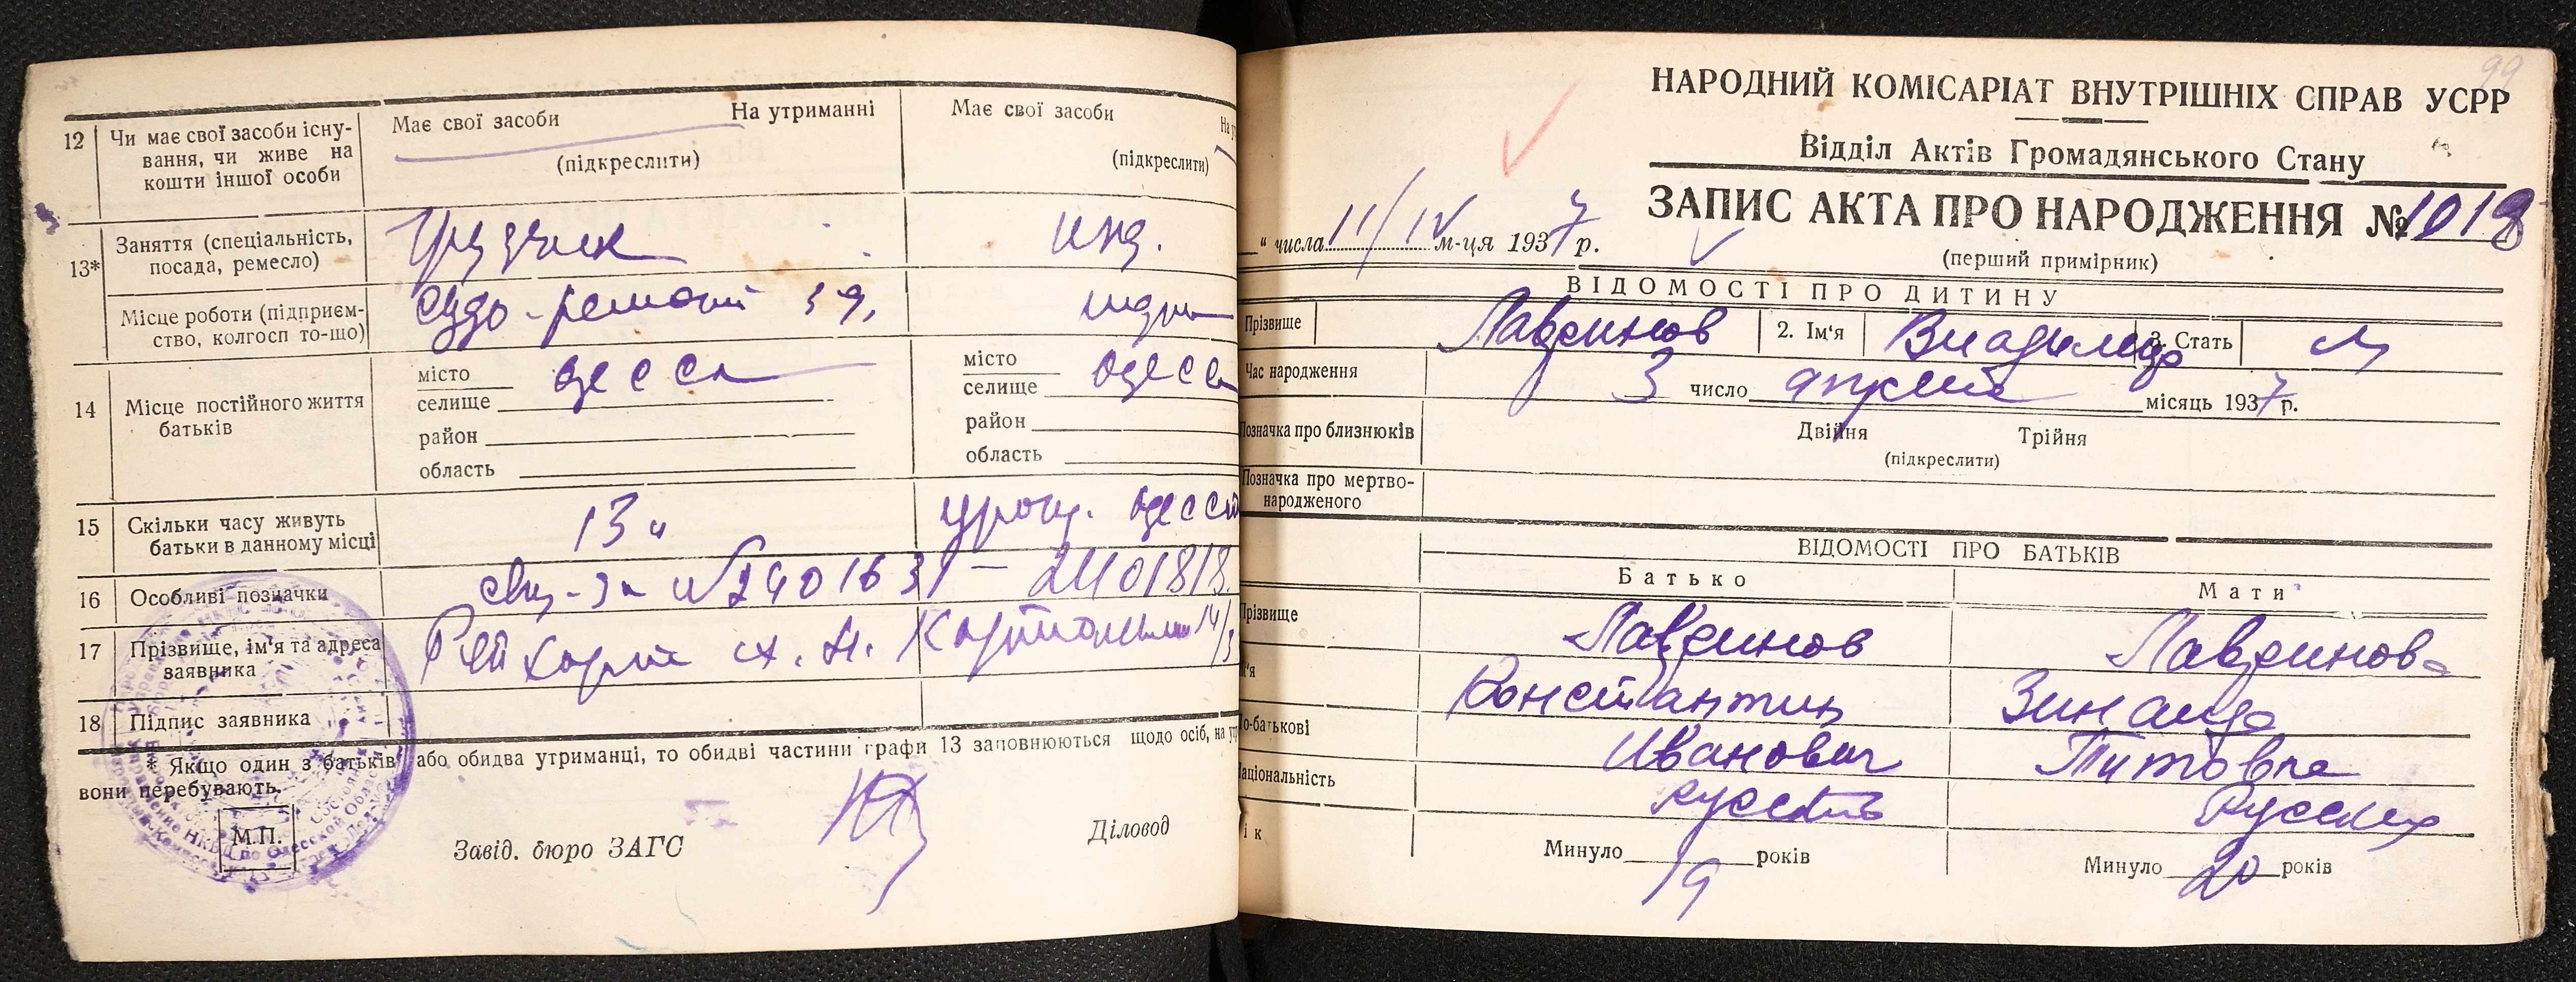 12 Чи має свої засоби існу-
вання, чи живе на
кошти іншої особи
Має свої засоби На утриманні
(підкреслити)
Має свої засоби
(підкреслити)
13* Заняття (спеціальність,
посада, ремесло)
Грузчик
Місце роботи (підприєм-
ство, колгосп то-що)
Судо-ремонт
14 Місце постійного життя
батьків
місто Одесса
селище
район
область
місто Одесса
селище
район
область
15 Скільки часу живуть
батьки в данному місці
13
16 Особливі позначки
17 Прізвище, ім'я та адреса
заявника
18 Підпис заявника
* Якщо один з батьків або обидва утриманці, то обидві частини графи 13 заповнюються щодо осіб, на
вони перебувають.
М.П.
Завід. бюро ЗАГС
Діловод
99
НАРОДНИЙ КОМІСАРІАТ ВНУТРІШНІХ СПРАВ УСРР
Відділ Актів Громадянського Стану
ЗАПИС АКТА ПРО НАРОДЖЕННЯ № 1018
(перший примірник)
" числа 11/IV м-ця 1937 р.
ВІДОМОСТІ ПРО ДИТИНУ
Прізвище Лавринов 2. Ім'я Владимир 3. Стать М
Час народження 3 число апреля місяць 1937 р.
Позначка про близнюків Двійня Трійня
(підкреслити)
Позначка про мертво-
народженого
ВІДОМОСТІ ПРО БАТЬКІВ
Батько Мати
Прізвище Лавринов Лавринова
Константин Зинаида
по-батькові Иванович Титовна
Національність русский Русская
Минуло 19 років Минуло 20 років